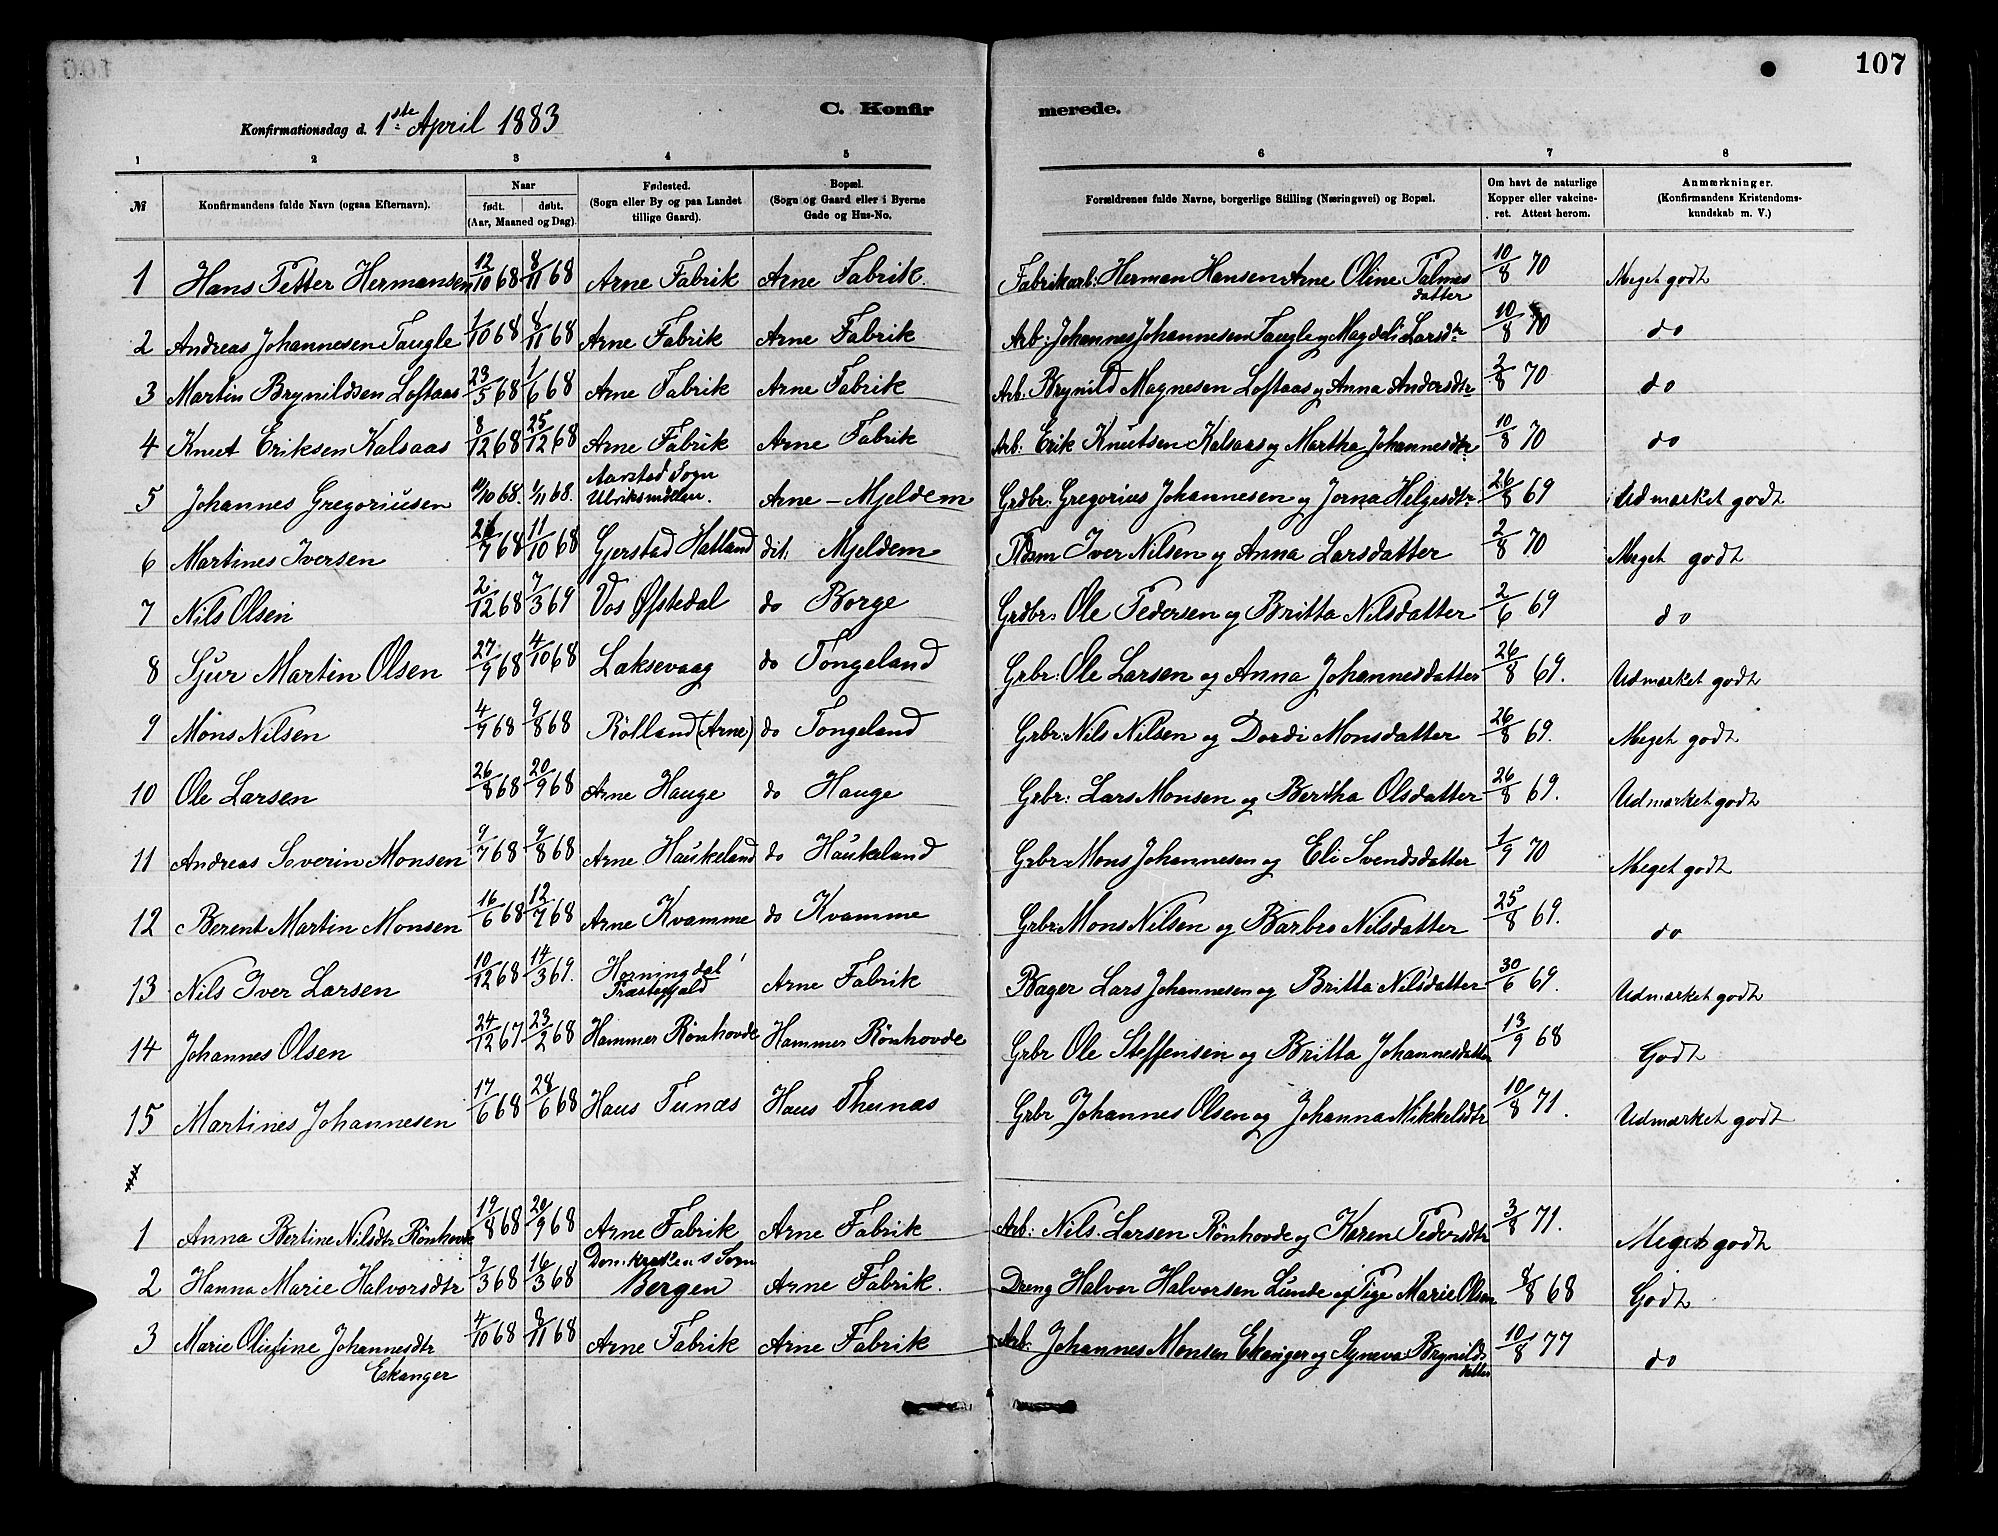 107
Konfirmationsdag d. 1ste April 1883 C. Konfirmerede.
1 2 3 4 5 6 7 8
№ Konfirmandens fulde Navn (ogsaa Efternavn). Naar født. døbt. (Aar, Maaned og Dag). Fødested. (Sogn eller By og paa Landet tillige Gaard). Bopæl. (Sogn og Gaard eller i Byerne Gade og Hus-No. Forældrenes fulde Navne, borgerlige Stilling (Næringsvei) og Bopæl. Om havt de naturlige Kopper eller vaccineret. Attest herom. Anmærkninger. (Konfirmandens Kristendomskundskab m. V.)
1 Hans Petter Hermansen 12/10 68 8/11 68 Arne Fabrik Arne Fabrik. Fabrikarb: Herman Hansen Arne Oline Palmesdatter 10/8 70 Meget godt
2 Andreas Johannesen Taugle 1/10 68 8/11 68 Arne Fabrik Arne Fabrik Arb: Johannes Johannesen Taugle og Magdeli Larsdtr 10/8 70 do
3 Martin Brynildsen Loftaas 23/5 68 1/6 68 Arne Fabrik Arne Fabrik Arb: Brynild Magnesen Loftaas og Anna Andersdtr 2/8 70 do
4 Knut Eriksen Kalsaas 8/12 68 25/12 68 Arne Fabrik Arne Fabrik Arb: Erik Knutsen Kalsaas og Martha Johannesdtr 10/8 70 do
5 Johannes Gregoriusen 11/10 68. 1/11 68. Aarstad Sogn Ulriksmøllen. Arne – Mjeldem Grdbr: Gregorius Johannesen og Jorna Helgesdtr 26/8 69 Udmarket godt
6 Martines Iversen 26/7 68 11/10 68 Gjerstad Hatland dit. Mjeldem Iver Nilsen og Anna Larsdatter 2/8 70 Meget godt
7 Nils Olsen 2/12 68 7/3 69 Vos Øfstedal do Borge Grdbr: Ole Pedersen og Britta Nilsdatter 2/6 69 do
8 Sjur Martin Olsen 27/9 68 4/10 68 Laksevaag do Tongeland Grbr: Ole Larsen og Anna Johannesdatter 26/8 69. Udmarket godt
9 Mons Nilsen 4/9 68 9/8 68 Rolland (Arne) do Tongeland Grbr: Nils Nilsen og Dordi Monsdatter 26/8 69. Meget godt
10 Ole Larsen 26/8 68 20/9 68 Arne Hauge do Hauge Grbr: Lars Monsen og Bertha Olsdatter 26/8 69. Udmarket godt
11 Andreas Severin Monsen 9/7 68 9/8 68 Arne Haukeland do Haukeland Grbr: Mons Johannesen og Eli Svendsdatter 1/9 70 Meget godt
12 Berent Martin Monsen 16/6 68 12/7 68 Arne Kvamme do Kvamme Grbr: Mons Nilsen og Barbro Nilsdatter 25/8 69. do
13 Nils Iver Larsen 10/12 68 14/3 69. Horningdal Præstegjæld Arne Fabrik Bager Lars Johannesen og Britta Nilsdatter 30/6 69. Udmarket godt
14 Johannes Olsen 24/12 67 23/2 68 Hammer Rönhovde Hammer Rönhovde Grbr Ole Steffensen og Britta Johannesdatter 13/9 68 Godt
15 Martines Johannesen 17/6 68 28/6 68 Haus Tunæs Haus Thunæs Grbr Johannes Olsen og Johanna Mikkelsdtr 10/8 71. Udmærket godt
1 Anna Bertine Nilsdtr Rönhovde 19/8 68 20/9 68 Arne Fabrik Arne Fabrik Arb: Nils Larsen Rönhovde og Karen Pedersdtr 3/8 71. Meget godt
2 Hanna Marie Halvorsdtr 9/3 68 16/3 68 Domkirkens Sogn Bergen Arne Fabrik. Dreng Halvor Halvorsen Lunde og Pige Marie Olsen 8/8 68 Godt
3 Marie Olufine Johannesdtr Eekanger 4/10 68 8/11 68 Arne Fabrik Arne Fabrik Arb: Johannes Monsen Ekanger og Syneva Brynildsdatter 10/8 77 do